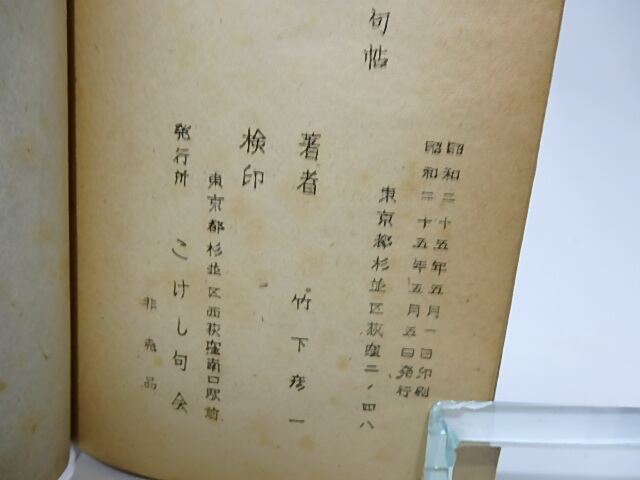 句帖
昭和二十五年五月一日印刷
昭和二十五年五月五日発行
東京都杉並区荻窪二ノ四八
著者 竹下彦一
検印
東京都杉並区西荻窪南口駅前
発行所 こけし句会
非売品